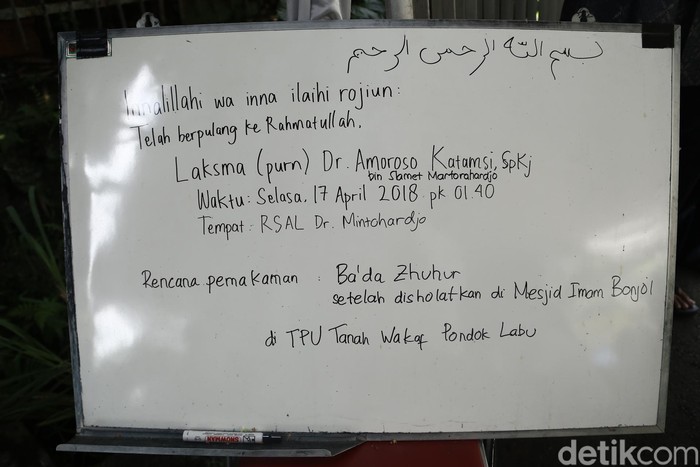 بسم الله الرحمن الرحيم
Innalillahi wa inna ilaihi rojiun :
Telah berpulang ke Rahmatullah.
Laksma (purn) Dr. Amoroso Katamsi, SpKj
bin Slamet Martorahardjo
Waktu : Selasa, 17 April 2018 pk 01.40
Tempat : RSAL Dr. Mintohardjo
Rencana pemakaman : Ba'da Zhuhur
setelah disholatkan di Mesjid Imam Bonjol
di TPU Tanah Wakaf Pondok Labu
SNOWMAN
detikcom